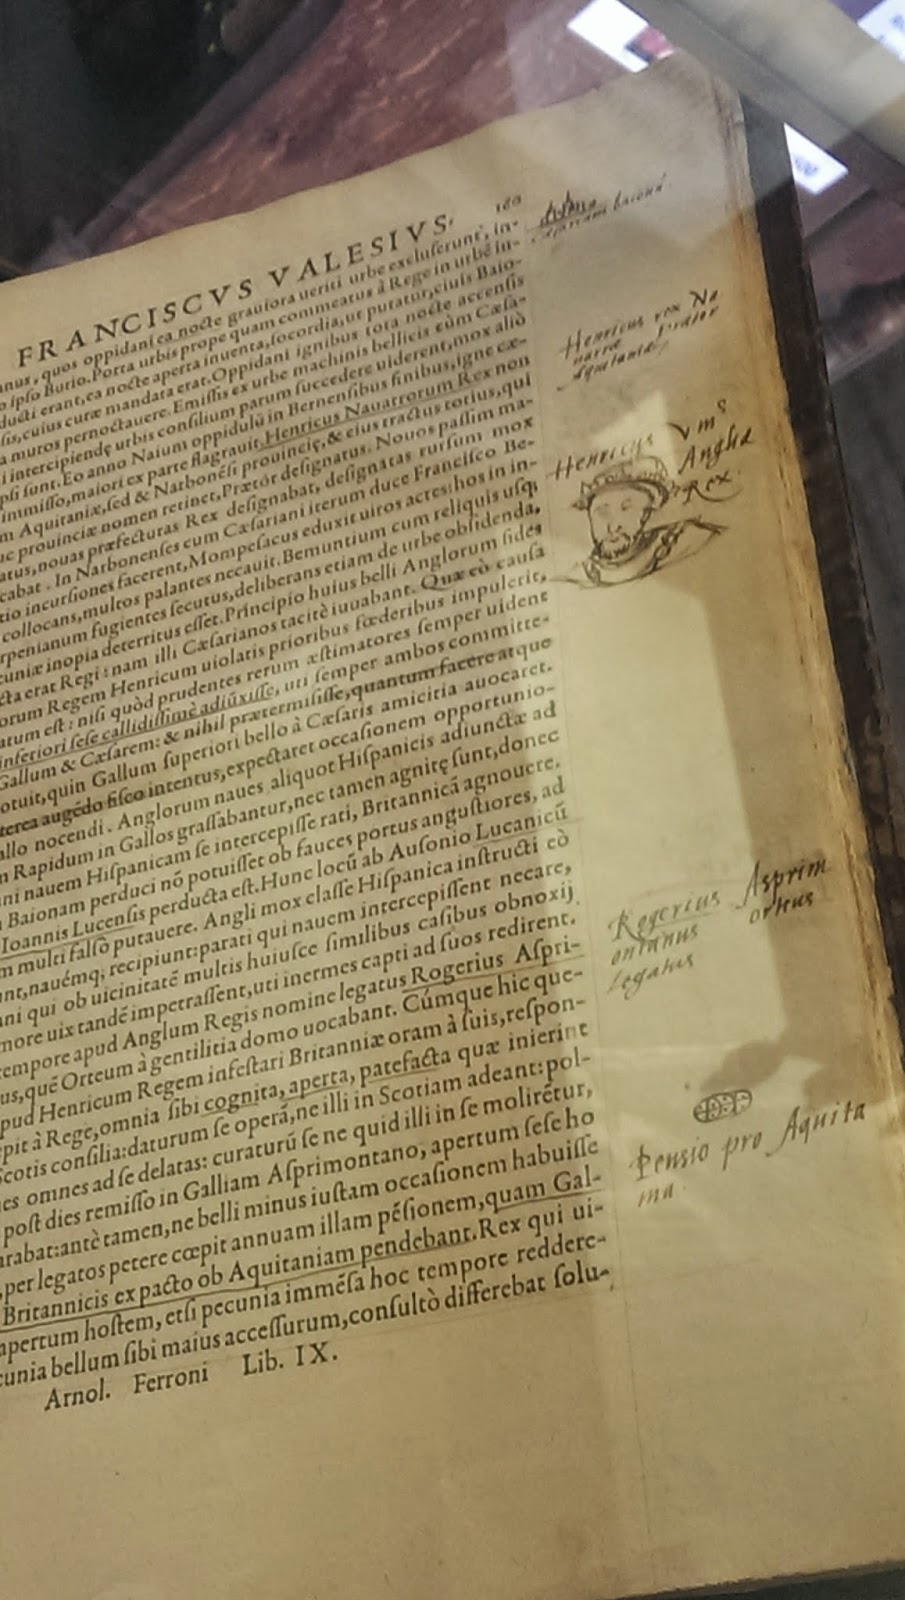 FRANCISCVS VALESIVS. 160
anus, quos oppidani ea nocte grauiora ueriti urbe excluserunt, in-
ipso Burio. Porta urbis prope quam commeatus à Rege in urbē in-
ducti erant, ea nocte aperta inuenta, socordia, ut putatur, ciuis Baio-
sis, cuius curæ mandata erat. Oppidani ignibus tota nocte accensis
a muros pernoctauere. Emissis ex urbe machinis bellicis cùm Cæsa-
i intercipiendę urbis consilium parum succedere uiderent, mox aliò
psi sunt. Eo anno Naium oppidulū in Bernensibus finibus, igne cæ-
immisso, maiori ex parte flagrauit. Henricus Nauarrorum Rex non
m Aquitaniæ, sed & Narbonēsi prouincię, & eius tractus totius, qui
uc prouinciæ nomen retinet, Prætor designatus. Nouos passim ma-
atus, nouas præfecturas Rex designabat, designatas rursum mox
cabat. In Narbonenses cum Cæsariani iterum duce Francisco Be-
tio incursiones facerent, Mompesacus eduxit uiros acres: hos in in-
collocans, multos palantes necauit. Bemuntium cum reliquis usq;
rpenianum fugientes secutus, deliberans etiam de urbe obsidenda,
cuniæ inopia deterritus esset. Principio huius belli Anglorum fides
cta erat Regi: nam illi Cæsarianos tacitè iuuabant. Quæ eò causa
orum Regem Henricum uiolatis prioribus fœderibus impulerit,
atum est: nisi quòd prudentes rerum æstimatores semper uident
inferiori sese callidissimè adiūxisse, uti semper ambos committe-
Gallum & Cæsarem: & nihil prætermisisse, quantum facere atque
otuit, quin Gallum superiori bello à Cæsaris amicitia auocaret.
terea augēdo fisco intentus, expectaret occasionem opportunio-
allo nocendi. Anglorum naues aliquot Hispanicis adiunctæ ad
n Rapidum in Gallos grassabantur, nec tamen agnitę sunt, donec
ani nauem Hispanicam se intercepisse rati, Britannicā agnouere.
Baionam perduci nō potuisset ob fauces portus angustiores, ad
Ioannis Lucensis perducta est. Hunc locū ab Ausonio Lucanicū
m multi falsò putauere. Angli mox classe Hispanica instructi eò
unt, nauémq; recipiunt: parati qui nauem intercepissent necare,
ani qui ob uicinitatē multis huiusce similibus casibus obnoxij
more uix tandē impetrassent, uti inermes capti ad suos redirent.
tempore apud Anglum Regis nomine legatus Rogerius Aspri-
us, quē Orteum à gentilitia domo uocabant. Cúmque hic que-
pud Henricum Regem infestari Britanniæ oram à suis, respon-
epit à Rege, omnia sibi cognita, aperta, patefacta quæ inierint
Scotis consilia: daturum se operā, ne illi in Scotiam adeant: pol-
es omnes ad se delatas: curaturū se ne quid illi in se molirētur,
post dies remisso in Galliam Asprimontano, apertum sese ho
arabat: antè tamen, ne belli minus iustam occasionem habuisse
, per legatos petere cœpit annuam illam pēsionem, quam Gal-
Britannicis ex pacto ob Aquitaniam pendebant. Rex qui ui-
apertum hostem, etsi pecunia immēsa hoc tempore reddere-
cunia bellum sibi maius accessurum, consultò differebat solu-
Arnol. Ferroni Lib. IX.
Henricus rex Na
uarræ Prætor
Aquitaniæ
Henricus Vmˢ
Angliæ
Rex
Rogerius Asprim
ontanus ortus
Legatus
Pensio pro Aquita
nia.